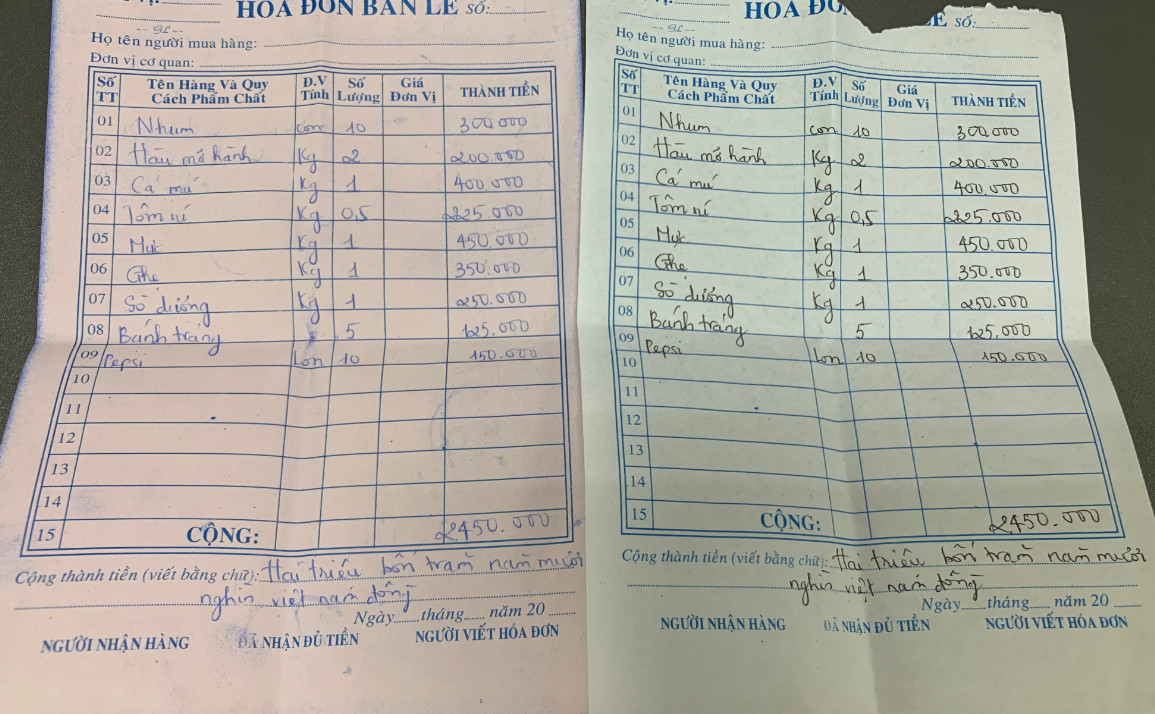 HÓA ĐƠN BÁN LẺ Số:
Họ tên người mua hàng:
Đơn vị cơ quan:
Số TT Tên Hàng Và Quy Cách Phẩm Chất Đ.V Tính Số Lượng Giá Đơn Vị THÀNH TIỀN
01 Nhum con 10 300.000
02 Hàu mở hành Kg 2 200.000
03 Cá mú Kg 1 400.000
04 Tôm ní Kg 0,5 225.000
05 Mực Kg 1 450.000
06 Ghẹ Kg 1 350.000
07 Sò dương Kg 1 250.000
08 Bánh tráng 5 125.000
09 Pepsi Lon 10 150.000
10
11
12
13
14
15 CỘNG: 2450.000
Cộng thành tiền (viết bằng chữ): Hai triệu bốn trăm năm mươi
nghìn việt nam đồng
Ngày tháng năm 20
NGƯỜI NHẬN HÀNG ĐÃ NHẬN ĐỦ TIỀN NGƯỜI VIẾT HÓA ĐƠN
HÓA ĐƠ LẺ Số:
Họ tên người mua hàng:
Đơn vị cơ quan:
Số TT Tên Hàng Và Quy Cách Phẩm Chất Đ.V Tính Số Lượng Giá Đơn Vị THÀNH TIỀN
01 Nhum con 10 300.000
02 Hàu mở hành Kg 2 200.000
03 Cá mú Kg 1 400.000
04 Tôm ní Kg 0,5 225.000
05 Mực Kg 1 450.000
06 Ghẹ Kg 1 350.000
07 Sò dương Kg 1 250.000
08 Bánh tráng 5 125.000
09 Pepsi Lon 10 150.000
10
11
12
13
14
15 CỘNG: 2450.000
Cộng thành tiền (viết bằng chữ): Hai triệu bốn trăm năm mươi
nghìn việt nam đồng
Ngày tháng năm 20
NGƯỜI NHẬN HÀNG ĐÃ NHẬN ĐỦ TIỀN NGƯỜI VIẾT HÓA ĐƠN